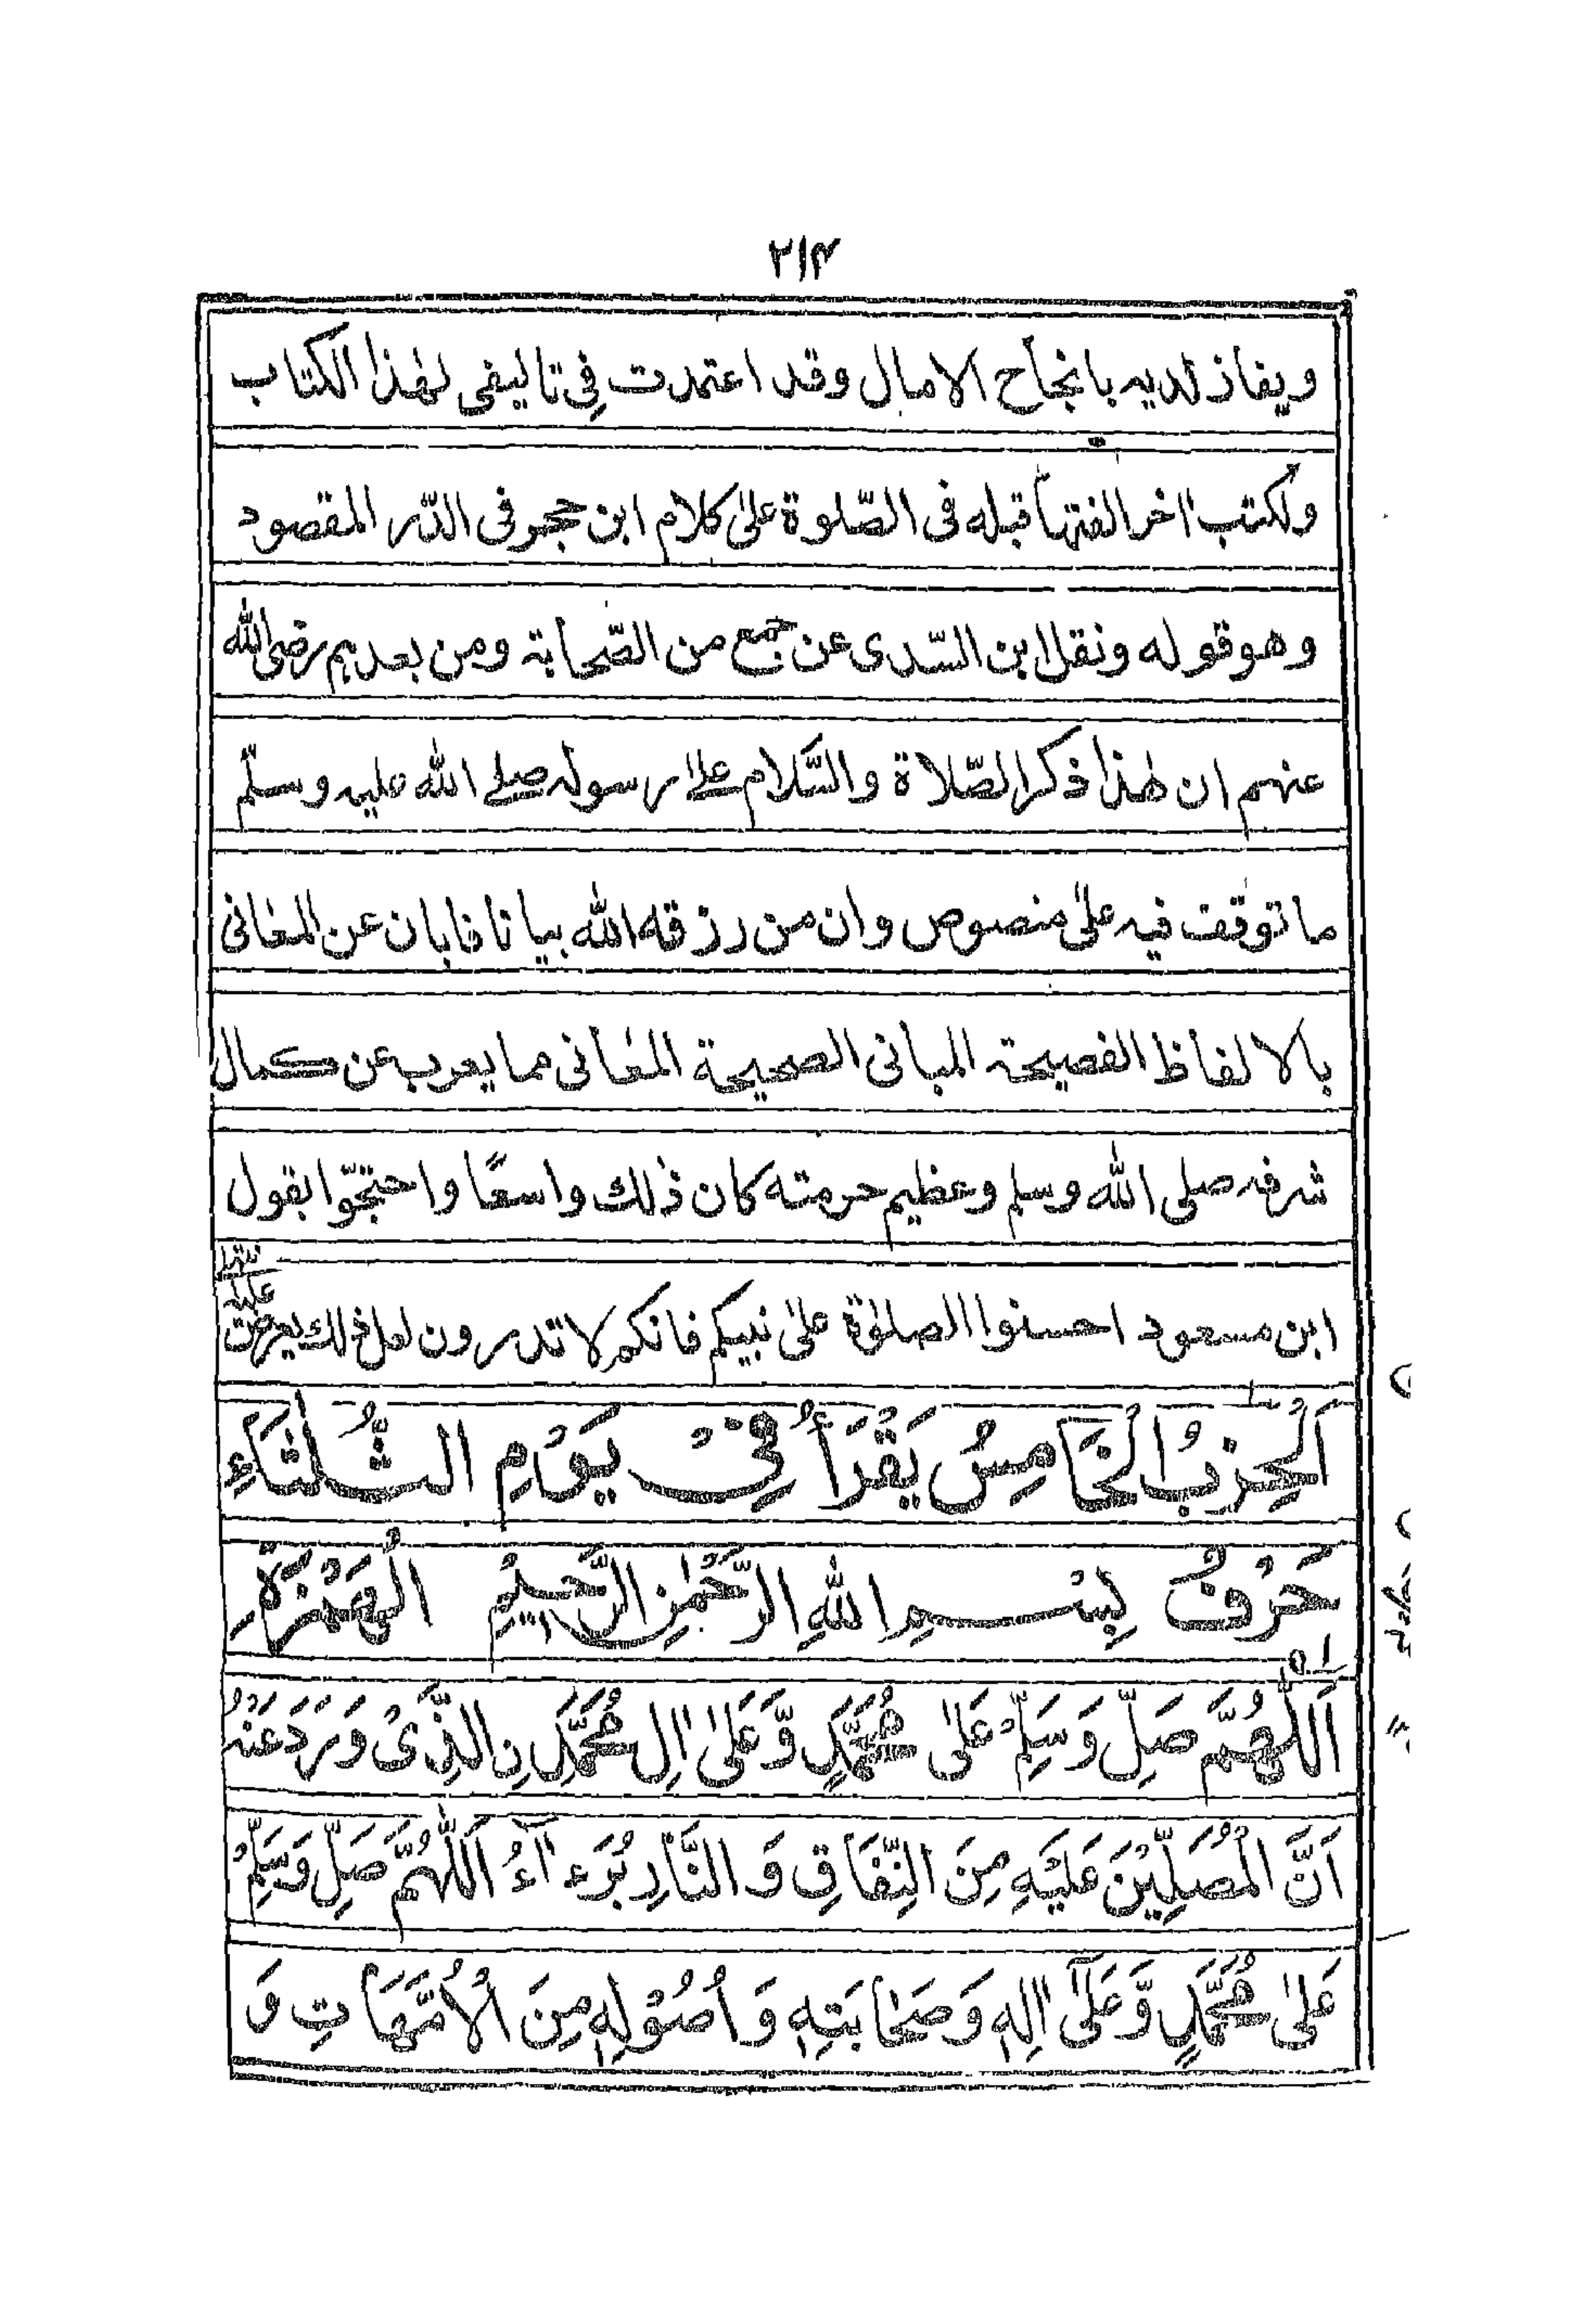 ٢١٤
ويفاذ لديه بانجاح الامال وقد اعتمدت فِي تاليفى لهٰذا الكتاب
ولكتب اٰخر الفتها قبله فى الصّلوة علىٰ كلام ابن حجر فى الدّر المقصود
وهو قوله ونقل ابن السّدى عن جمع من الصّحابة ومن بعدهم رضى الله
عنهم ان هٰذا ذكر الصّلاة والسَّلام علےٰ رسوله صلے الله عليه وسلّم
ما توقف فيه علىٰ منصوص وان من رزقه الله بيانا فابان عن المعٰانى
بالالفاظ الفصيحة المبانى الصحيحة المعٰانى مما يعرب عن كمال
شرفه صلى الله وسلم وعظيم حرمته كان ذٰلك واسعًا واحتجّوا بقول
ابن مسعود احسنوا الصلوٰة علىٰ نبيكم فانكم لا تدرون لعل ذلك يعرض عليه
اَلْحِزْبُ الْخَامِسُ يَقْرَأُ فِيْ يَوْمِ الثُّلٰثَاءِ
حَرْفُ بِسْمِ اللهِ الرَّحْمٰنِ الرَّحِيْمِ الْهَمْزَةِ
اَللّٰهُمَّ صَلِّ وَسَلِّمْ عَلٰى مُحَمَّدٍ وَّعَلٰى اٰلِ مُحَمَّدِ نِ الَّذِىْ وَرَدَ عَنْهُ
اَنَّ الْمُصَلِّيْنَ عَلَيْهِ مِنَ النِّفَاقِ وَ النَّارِ بُرَءَآءُ اَللّٰهُمَّ صَلِّ وَسَلِّمْ
عَلٰى مُحَمَّدٍ وَّعَلٰٓى اٰلِهٖ وَصَحَابَتِهٖ وَ اُصُوْلِهٖ مِنَ الْاُمَّهَاتِ وَ